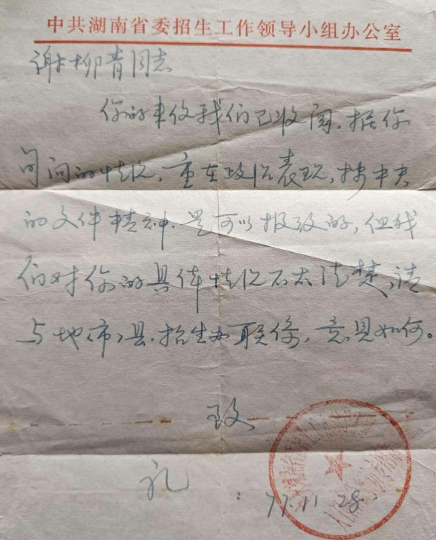 中共湖南省委招生工作领导小组办公室
谢柳青同志
你的来信我们已收阅，据你
询问的情况，重在政治表现，按中央
的文件精神，是可以报考的，但我
们对你的具体情况不太清楚，请
与地（市）、县招生办联系，意见如何。
致
礼
77.11.28